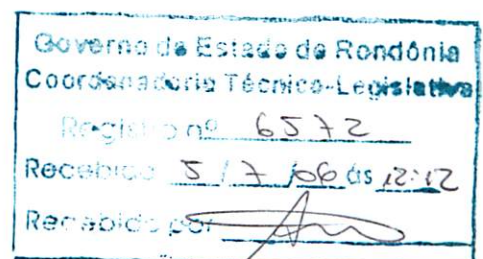 Governo do Estado de Rondônia
Coordenadoria Técnico-Legislativa
Registro nº 6572
Recebido 5 / 7 /06 às 12:12
Recebido por